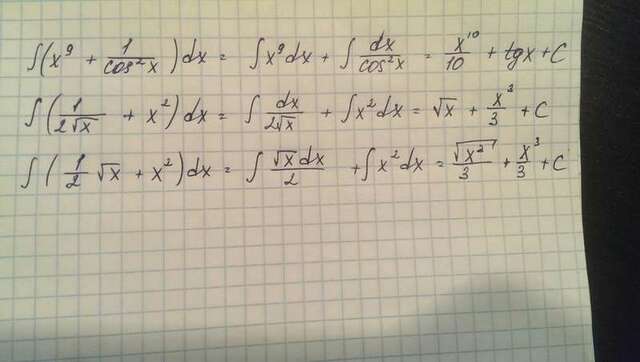 ∫(x⁹ + 1/cos²x)dx = ∫x⁹dx + ∫dx/cos²x = x¹⁰/10 + tgx + C
∫(1/(2√x) + x²)dx = ∫dx/(2√x) + ∫x²dx = √x + x³/3 + C
∫(1/2 √x + x²)dx = ∫(√x dx)/2 + ∫x²dx = √(x³)/3 + x³/3 + C